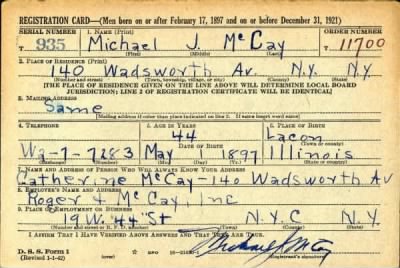 REGISTRATION CARD—(Men born on or after February 17, 1897 and on or before December 31, 1921)
SERIAL NUMBER 1. NAME (Print) ORDER NUMBER
T 935 Michael J. McCay 11700
(First) (Middle) (Last)
2. PLACE OF RESIDENCE (Print)
140 Wadsworth Av. N.Y. N.Y
(Number and street) (Town, township, village, or city) (County) (State)
[THE PLACE OF RESIDENCE GIVEN ON THE LINE ABOVE WILL DETERMINE LOCAL BOARD
JURISDICTION; LINE 2 OF REGISTRATION CERTIFICATE WILL BE IDENTICAL]
3. MAILING ADDRESS
Same
[Mailing address if other than place indicated on line 2. If same insert word same]
4. TELEPHONE 5. AGE IN YEARS 6. PLACE OF BIRTH
44 Lacon
DATE OF BIRTH
Wa-7-7283 May 1897 Illinois
(Exchange) (Number) (Mo.) (Day) (Yr.) (State or country)
7. NAME AND ADDRESS OF PERSON WHO WILL ALWAYS KNOW YOUR ADDRESS
Catherine McCay-140 Wadsworth Av
8. EMPLOYER'S NAME AND ADDRESS
Roger & McCay, Inc
9. PLACE OF EMPLOYMENT OR BUSINESS
19 W. 44 St N.Y.C N.Y.
(Number and street or R. F. D. number) (Town) (County) (State)
I AFFIRM THAT I HAVE VERIFIED ABOVE ANSWERS AND THAT THEY ARE TRUE.
D. S. S. Form 1
(Revised 1-1-42) GPO Michael J McCay